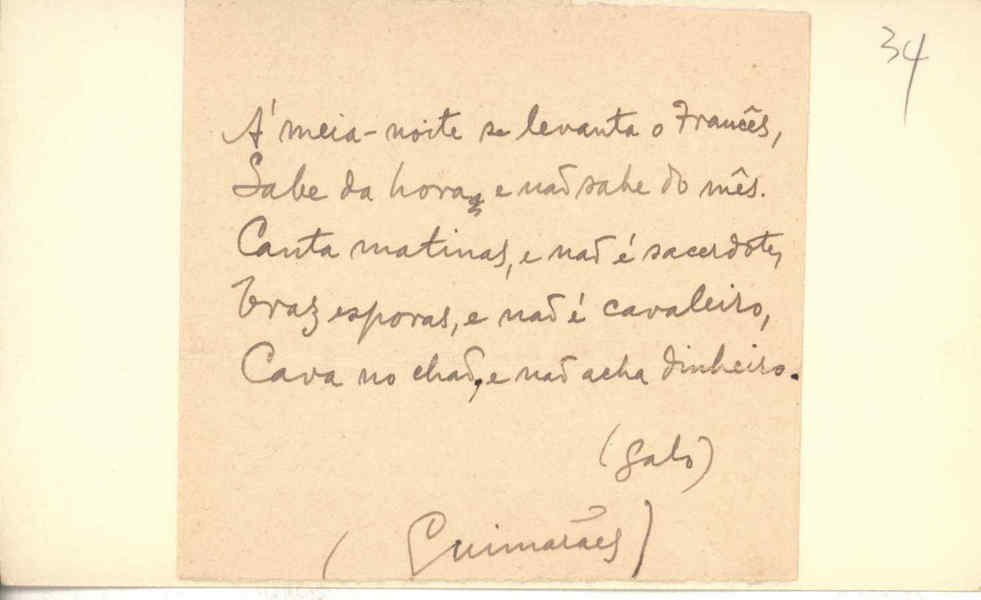 34
Á meia-noite se levanta o Francês,
Sabe da hora, e não sabe do mês.
Canta matinas, e não é sacerdote,
Traz esporas, e não é cavaleiro,
Cava no chão, e não acha dinheiro.
(galo)
(Guimarães)